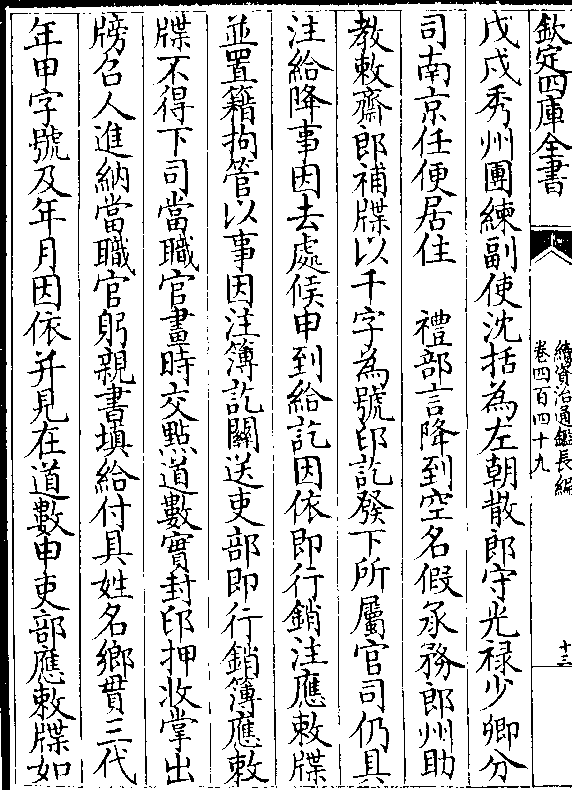 欽定四庫全書
續資治通鑑長編
卷四百四十九
十三
戊戌秀州團練副使沈括為左朝散郎守光禄少卿分
司南京任便居住　禮部言降到空名假承務郎州助
教敕齋郎補牒以千字為號印訖發下所屬官司仍具
注給降事因去處候申到給訖因依即行銷注應敕牒
並置籍拘管以事因注簿訖關送吏部即行銷簿應敕
牒不得下司當職官畫時交點道數實封印押收掌出
牓召人進納當職官躬親書填給付具姓名鄉貫三代
年甲字號及年月因依并見在道數申吏部應敕牒如